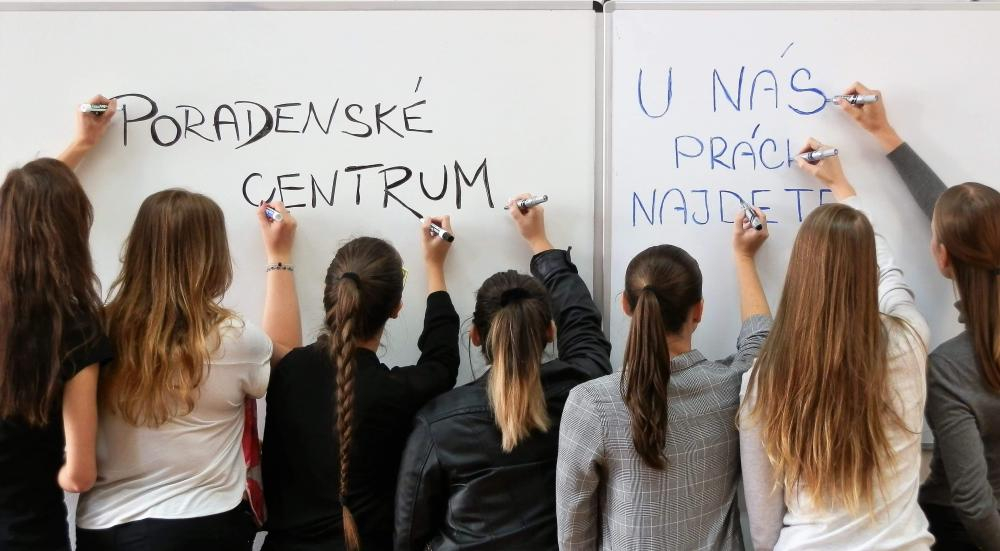 PORADENSKÉ
CENTRUM
U NÁS
PRÁCI
NAJDETE